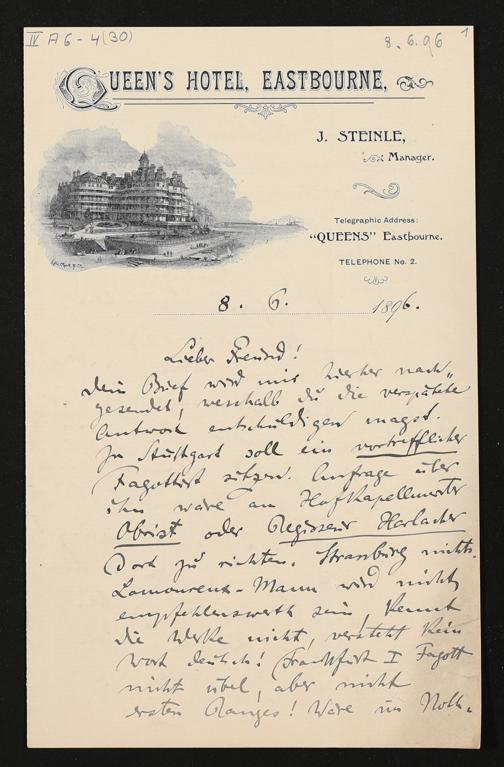 IV A6-4(30)
8.6.96
1
QUEEN'S HOTEL, EASTBOURNE,
J. STEINLE,
Manager.
Telegraphic Address:
"QUEENS" Eastbourne.
TELEPHONE No. 2.
8. 6. 1896.
Lieber Freund!
Dein Brief wird mir hierher nach„
gesendet, weshalb du die verspätete
Antwort entschuldigen magst.
In Stuttgart soll ein vortrefflicher
Fagottist sitzen. Anfrage über
ihn wäre an Hofkapellmeister
Obrist oder Regisseur Harlacher
Dort zu richten. Strassburg nichts.
Lamoureux-Mann wird nicht
empfehlenswerth sein, kennt
die Werke nicht, versteht kein
Wort deutsch! Frankfurt I Fagott
nicht übel, aber nicht
ersten Ranges! Wäre im Noth-